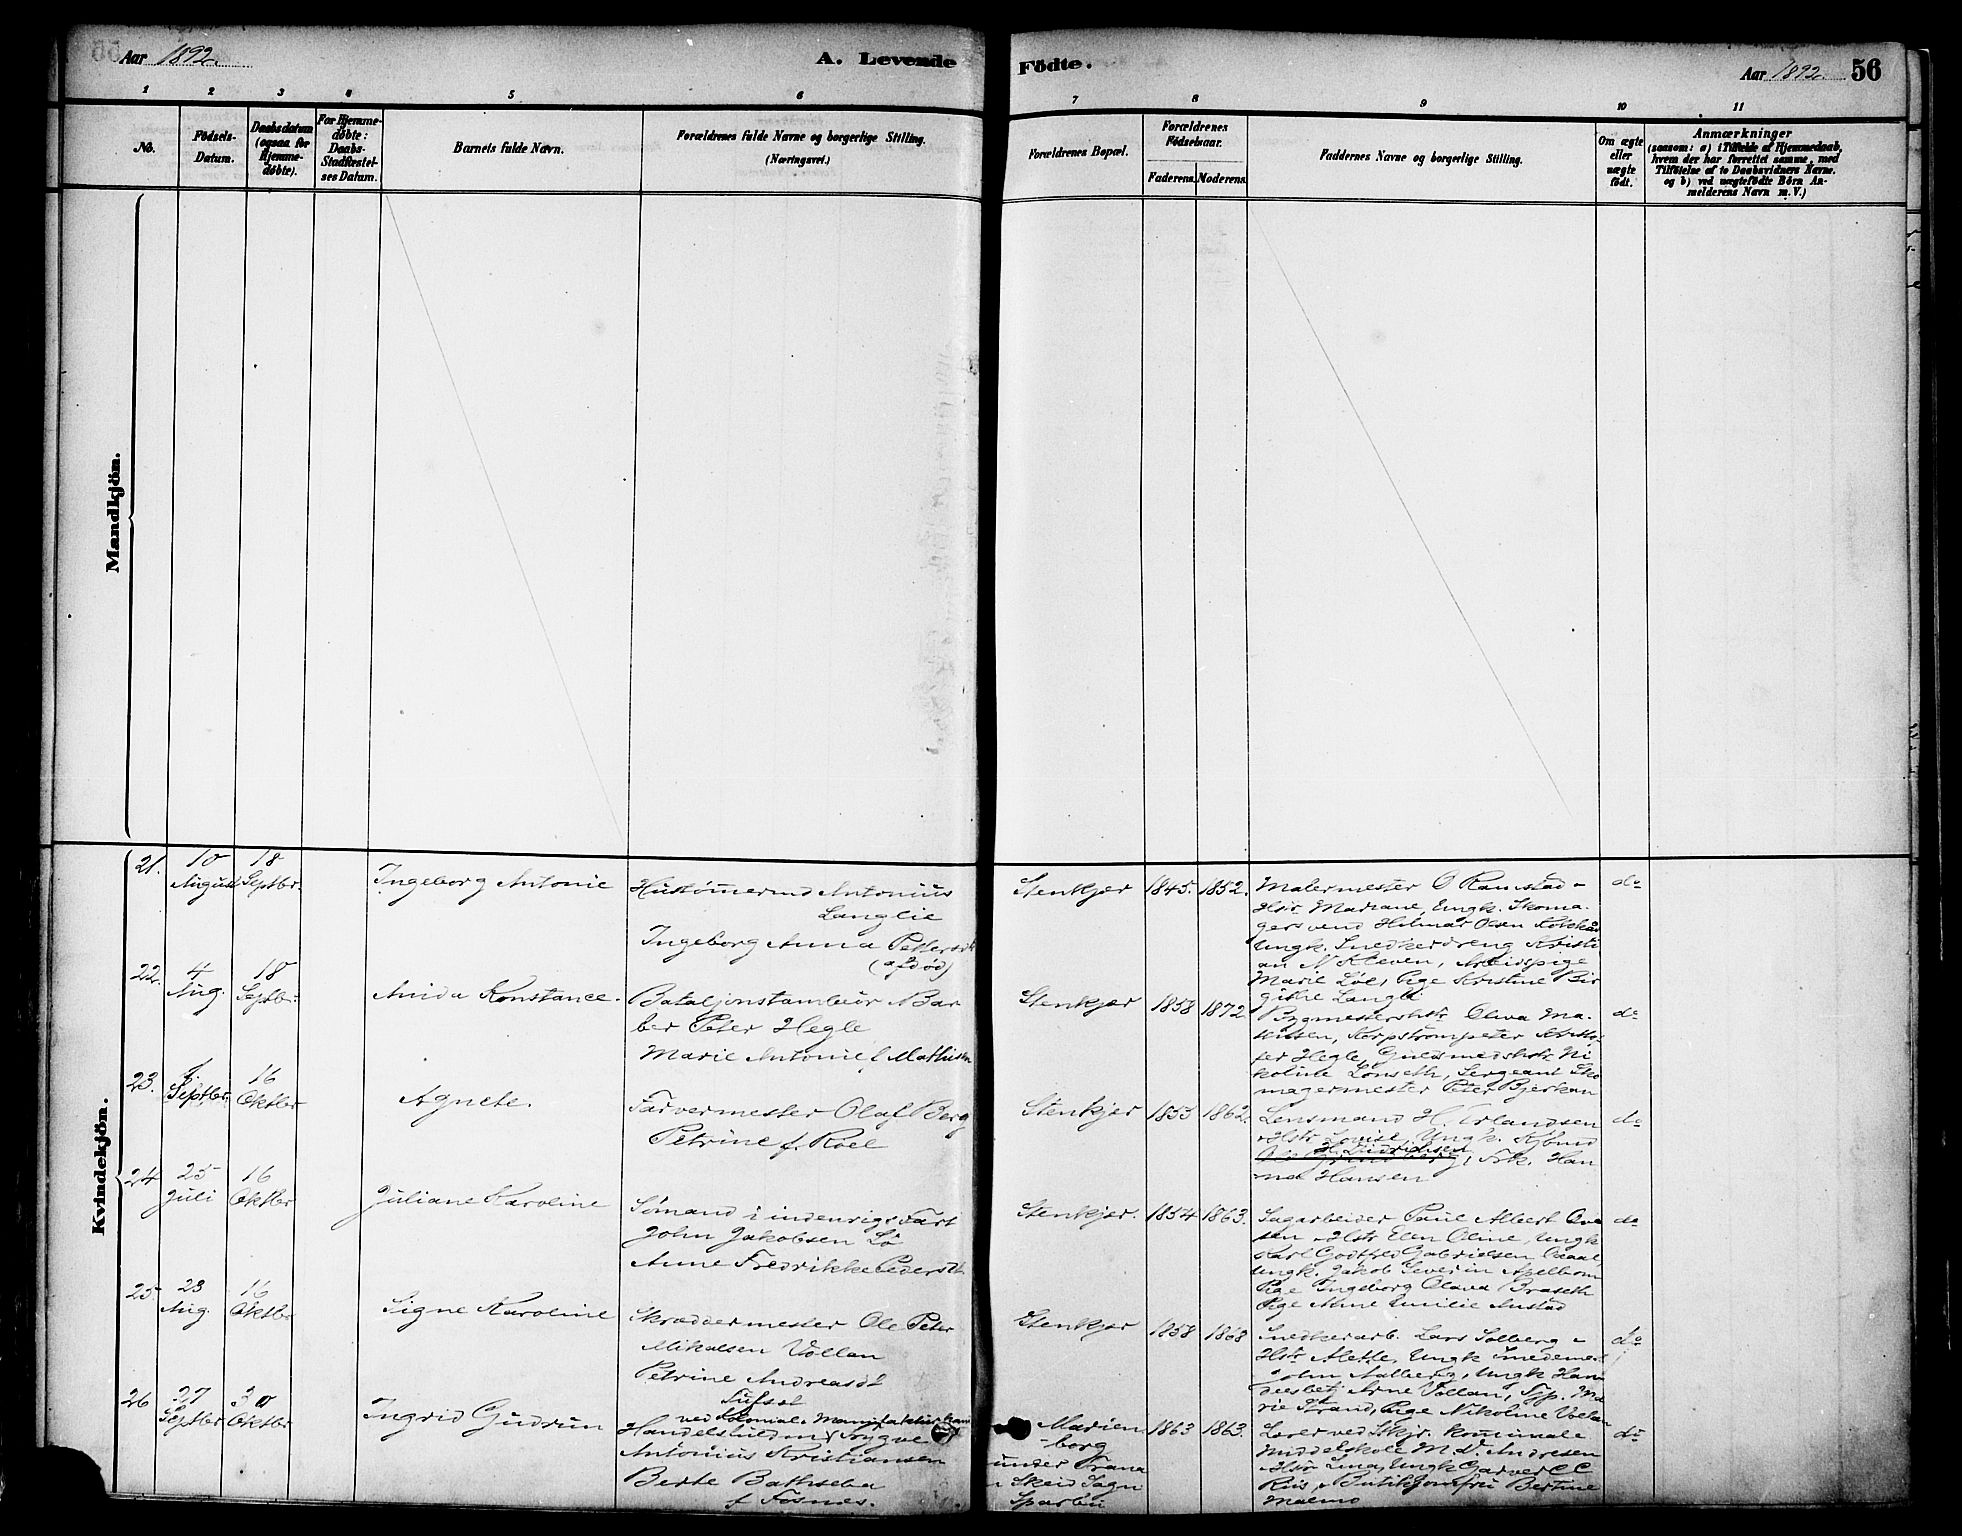 Aar 1892.
A. Levende
Födte.
Aar 1892.
56
1 2 3 4 5 6 7 8 9 10 11
No.
Födsels-
Datum.
Daabsdatum
(ogsaa for
Hjemme-
døbte).
For Hjemme-
døbte:
Daabs-
Stadfæstel-
ses Datum.
Barnets fulde Navn.
Forældrenes fulde Navne og borgerlige Stilling.
(Næringsvei.)
Forældrenes Bopæl.
Forældrenes
Födselsaar.
Faderens. Moderens.
Faddernes Navne og borgerlige Stilling.
Om ægte
eller
uægte
födt.
Anmærkninger
(saasom: a) i Tilfælde af Hjemmedaab,
hvem der har forrettet samme, med
Tilföielse af to Daabsvidners Navne.
og b) ved uægtefödte Börn An-
melderens Navn m. V.)
Mandkjön.
Kvindekjön.
21.
10
August
18
Septbr.
Ingeborg Antonie
Antonius
Langlie
Ingeborg Anna
(afdød)
Stenkjær
1845. 1852.
Malermester O Ramstad -
Hstr Mariane, Ungk. Skoma-
gersvend Hilmar Olsen
Ungk. Snedkerdreng Kristi
an N Kleven, Arbeidspige
Marie Løe, Pige Kristine Bir
gitte Langli
do
22.
4
Aug.
18
Septbr.
Konstance.
Bataljonstambur Bar
ber Peter Hegle
Marie Antonie f. Mathisen
Stenkjær
1858 1872
Bygmesterhstr Oliva Ma-
thisen, Korpstrompeter Kristo-
fer Hegle, Guldsmedhstr Ni
koline Lønseth, Sergeant Sko
magermester Peter Bjerkan
do
23.
Septbr.
16
Oktbr
Agnete.
Farvermester Olaf Berg
Petrine f. Roel
Stenkjær
1853 1862.
Lensmand H. Erlandsen
Hstr Louise, Ungk. Kjbmd
H. Didrichsen
Frk. Han
na Hansen
do
24
25
Juli
16
Oktbr
Juliane Karoline
Sømand i indenrigs Fart
John Jakobsen Lø
Anne Fredrikke Pedersdt
Stenkjær.
1854 1863.
Sagarbeider Paul Albert Ove
sen Hstr Elen Oline, Ungk
Karl Godtfred Gabrielsen
Ungk. Jakob Severin Apelbom
Pige Ingeborg Olava Braseth
Pige Anne Emilie Austad
do
25
23
Aug.
16
Oktbr
Signe Karoline
Skræddermester Ole Peter
Mikalsen Vollan
Petrine Andreasdt
Stenkjær
1858 1868
Snedkerarb. Lars Solberg -
Hstr Alette, Ungk Smedem.
John Aalberg, Ungk Han
delsbetj Arne Vollan, Syp. Ma
rie Strand, Pige Nikoline Vollan
do
26
27
Septbr
30
Oktbr
Ingrid Gudrun
ved Kolonial & Manufakturhan
Trygve
Antonius Kristiansen
Berte Bathseba
f Fosnes.
Marien
-borg
under Trana
Skeid Sogn
Sparbu
1863 1863.
Lærer ved Stkjr. komunale
Middelskole M. D. Andresen
Hstr Lina, Ungk Garver C C
Riis, Butikjomfru Bertine
Malmo
do